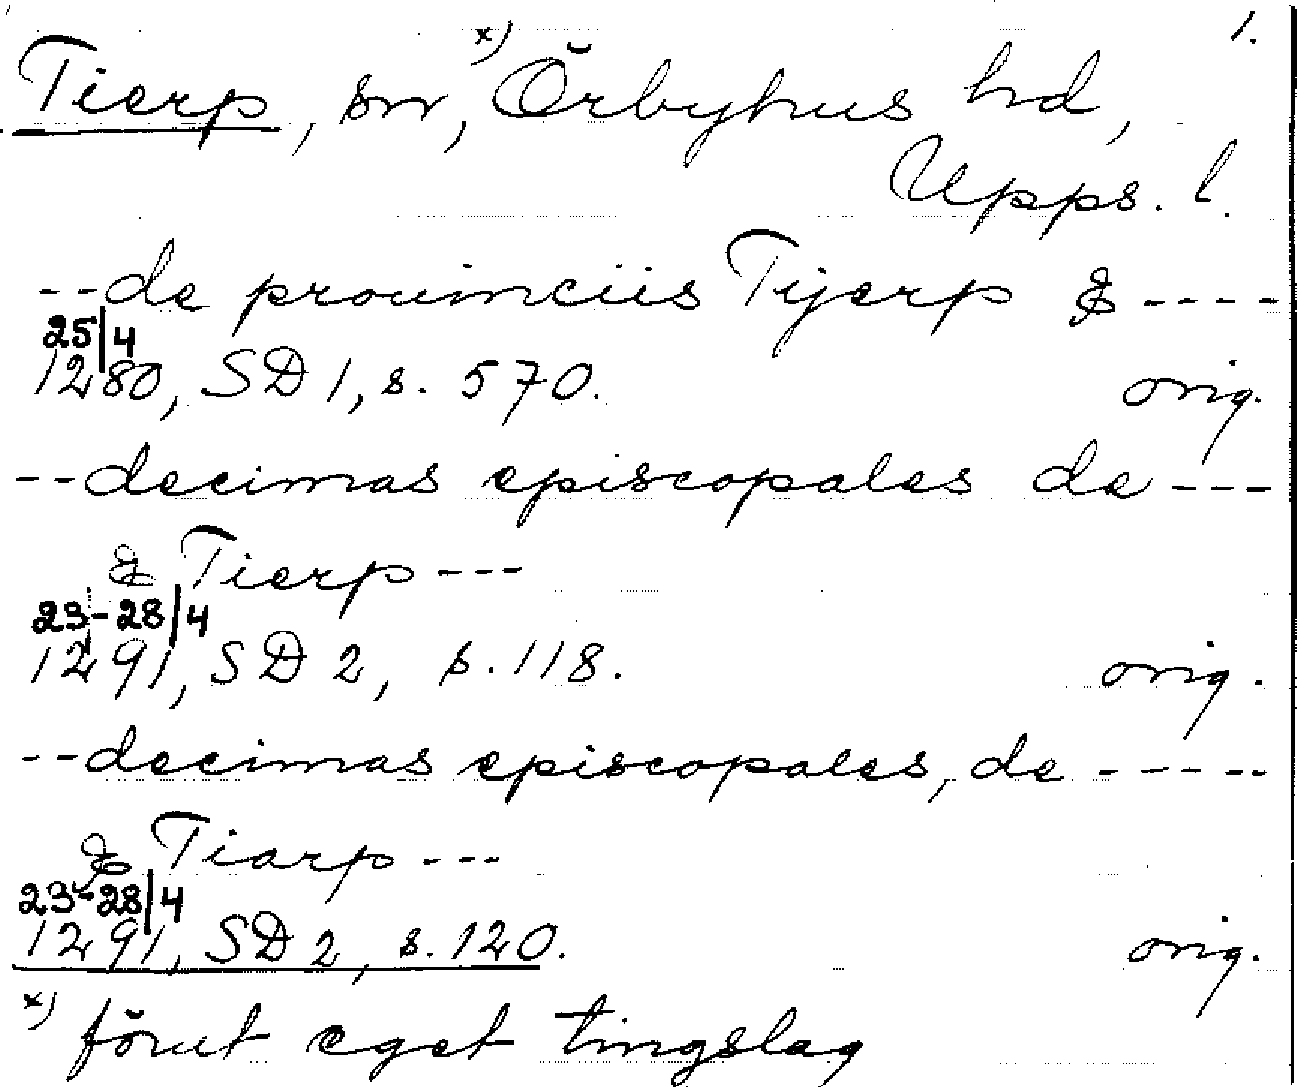 1.
Tierp, sn, x) Örbyhus hd,
Upps. l.
--de prouinciis Tijerp & ----
25/4
1280, SD 1, s. 570. orig.
--decimas episcopales de ---
& Tierp ---
23-28/4
1291, SD 2, s. 118. orig.
--decimas episcopales, de -----
& Tiarp ---
23-28/4
1291, SD 2, s. 120. orig.
x) förut eget tingslag